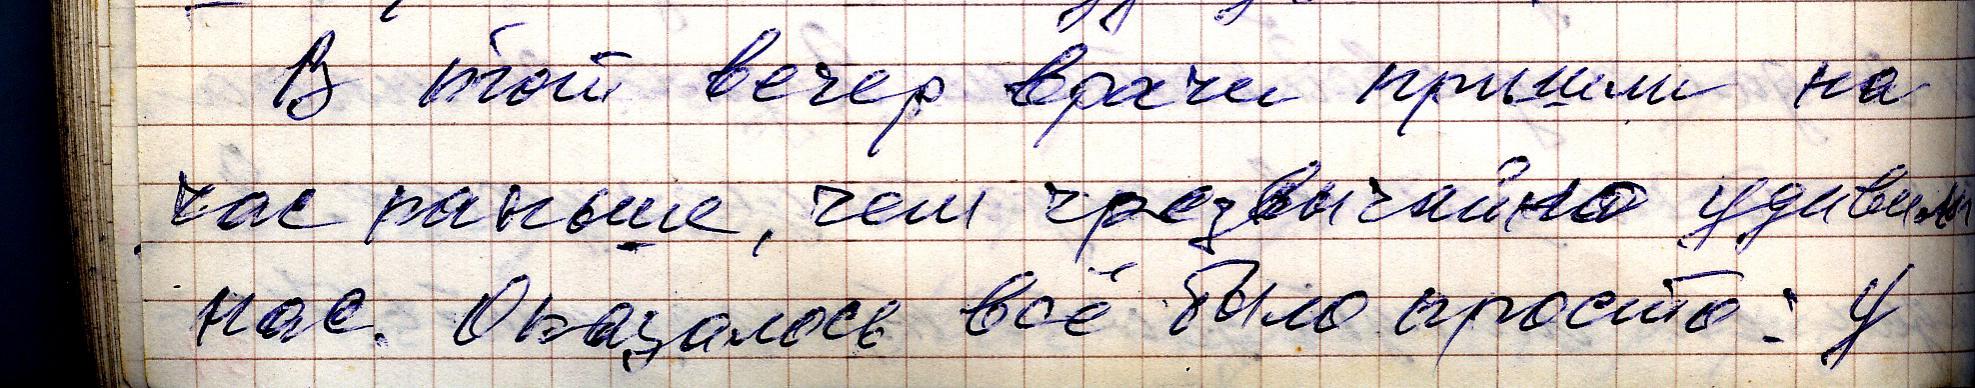 В той вечер врачи пришли на
час раньше, чем чрезвычайно удивили
нас. Оказалось всё было просто: у